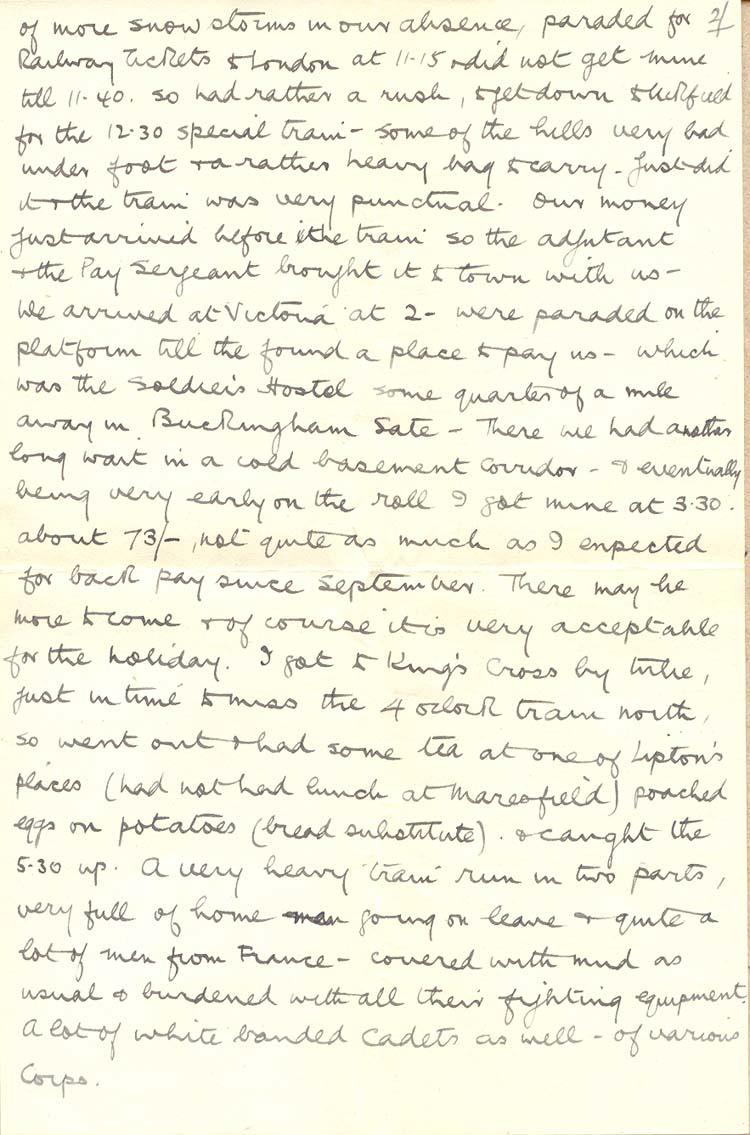 of more snow storms in our absence, paraded for 2/
Railway Tickets to London at 11-15 & did not get mine
till 11-40. so had rather a rush, to get down to Uckfield
for the 12-30 special train - some of the hills very bad
under foot & a rather heavy bag to carry - Just did
it & the train was very punctual. Our money
just arrived before the train so the adjutant
& the Pay Sergeant brought it to town with us -
We arrived at Victoria at 2 - were paraded on the
platform till the found a place to pay us - which
was the Soldiers Hostel some quarter of a mile
away in Buckingham Gate - There we had another
long wait in a cold basement corridor - & eventually
being very early on the roll I got mine at 3-30.
about 73/-, not quite as much as I expected
for back pay since September. There may be
more to come & of course it is very acceptable
for the holiday. I got to King's Cross by tube,
just in time to miss the 4 oclock train north,
so went out & had some tea at one of Lipton's
places (had not had lunch at Maresfield) poached
eggs on potatoes (bread substitute). & caught the
5-30 up. A very heavy train run in two parts,
very full of home men going on leave & quite a
lot of men from France - covered with mud as
usual & burdened with all their fighting equipment.
A lot of white banded Cadets as well - of various
Corps.